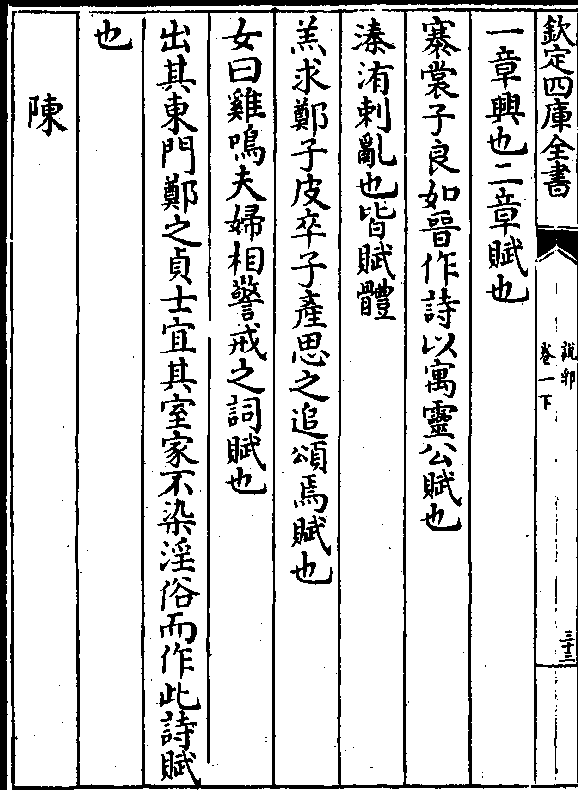 欽定四庫全書
說郛
卷一下
三十三
一章興也二章賦也
褰裳子良如晉作詩以寓靈公賦也
溱洧刺亂也皆賦體
羔求鄭子皮卒子產思之追頌焉賦也
女曰雞鳴夫婦相警戒之詞賦也
出其東門鄭之貞士宜其室家不染淫俗而作此詩賦
也
陳